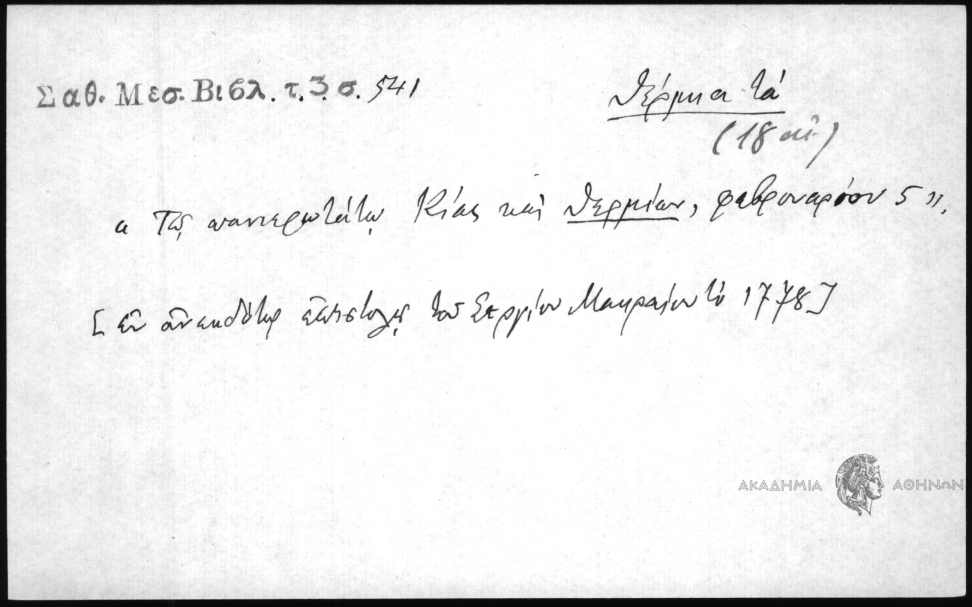 Σαθ. Μεσ. Βιβλ. τ. 3. σ. 541
Θέρμια τά
(18 αἰ.)
« Τῷ πανιερωτάτῳ Κίας καὶ Θερμίων, φαβρουαρίου 5 ».
[ ἐξ ἀνεκδότου ἐπιστολῆς τοῦ Σεργίου Μακραίου τῷ 1778 ]
ΑΚΑΔΗΜΙΑ ΑΘΗΝΩΝ